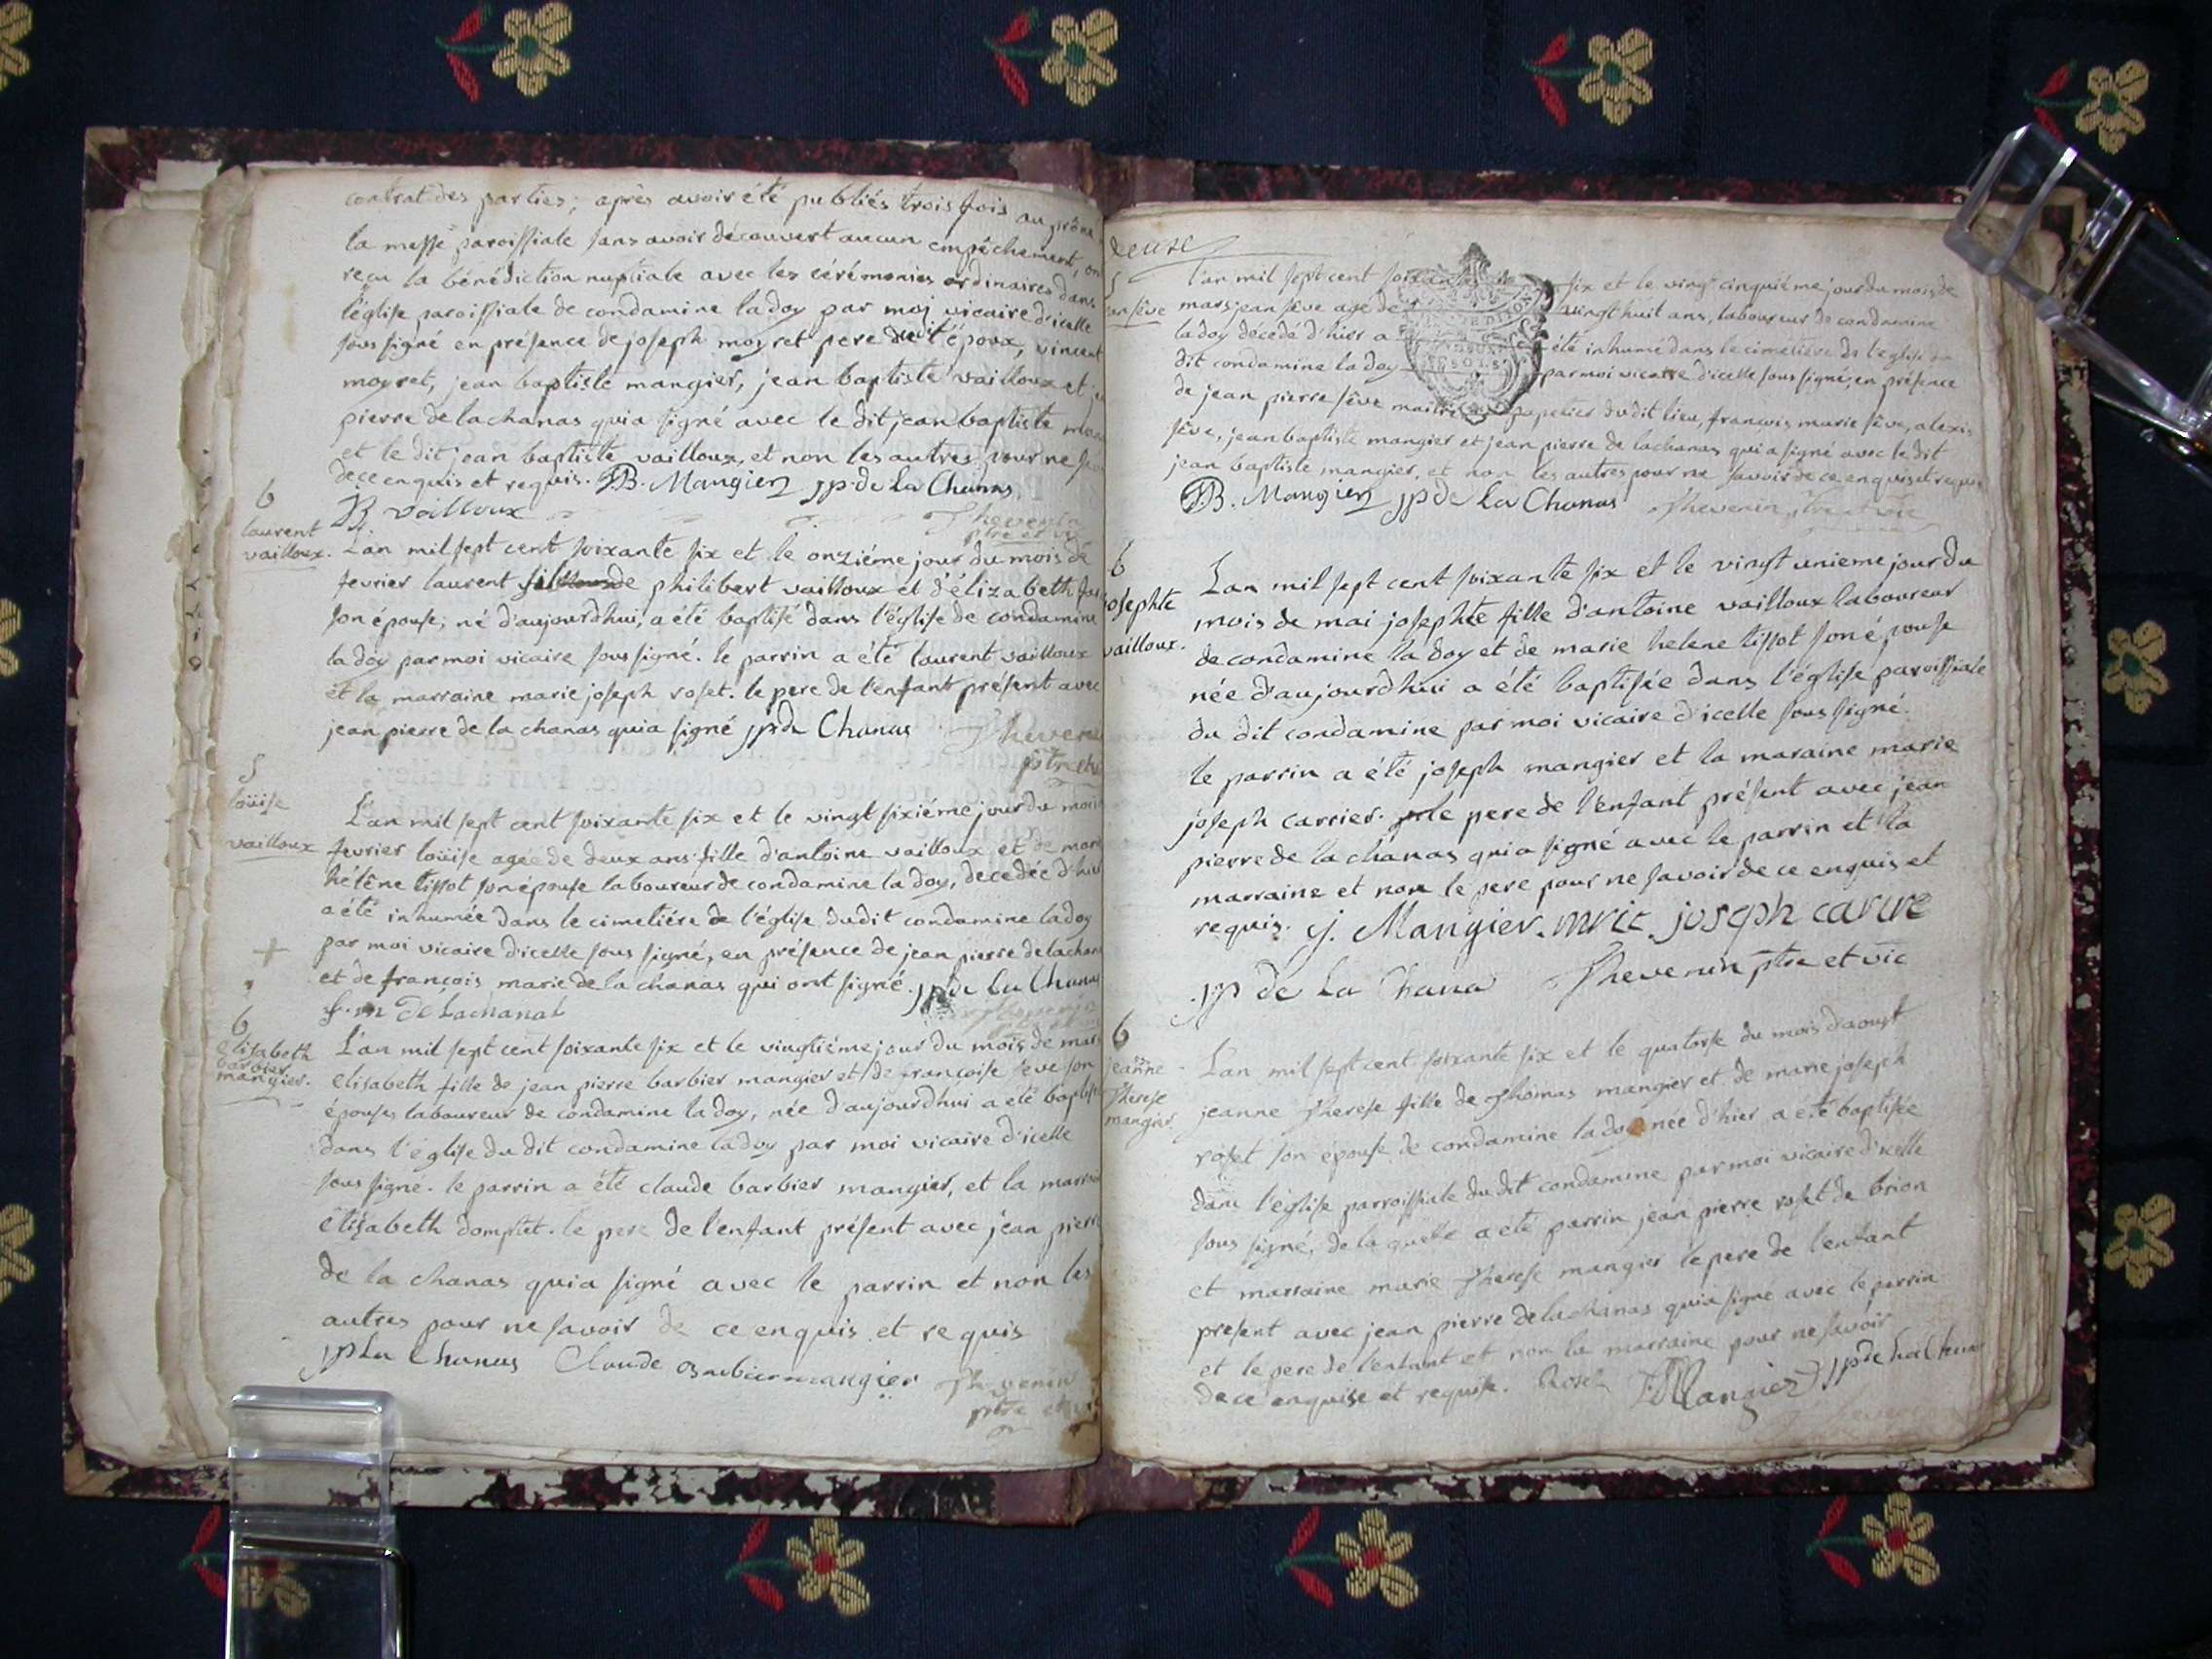 contrat des parties; après avoir été publiés trois fois au prône
la messe paroissiale sans avoir découvert aucun empêchement, on
reçu la bénédiction nuptiale avec les cérémonies ordinaires dans
l'église paroissiale de condamine la doy par moi vicaire d'icelle
sous signé en présence de joseph moyret pere du dit époux, vincent
moyret, jean baptiste mangier, jean baptiste vailloux et
pierre de lachanas qui a signé avec le dit jean baptiste
et le dit jean baptiste vailloux, et non les autres pour ne
de ce enquis et requis. JB. Mangier jp de La Chanas
JB vailloux Thevenin
ptre et vic
6
laurent
vailloux.
L'an mil sept cent soixante six et le onziéme jour du mois de
fevrier laurent fils de philibert vailloux et d'élizabeth
son épouse, né d'aujourdhui, a été baptisé dans l'église de condamine
la doy par moi vicaire sous signé. le parrin a été laurent vailloux
et la marraine marie joseph roset. le pere de l'enfant présent avec
jean pierre de la chanas qui a signé jp de Chanas Theveni
ptre et
5
loüise
vailloux
L'an mil sept cent soixante six et le vingt sixiéme jour du mois
fevrier loüise agée de deux ans fille d'antoine vailloux et de mar
hélêne tissot son épouse laboureur de condamine la doy, decedée d'hier
a été inhumée dans le cimetiére de l'église du dit condamine la doy
par moi vicaire d'icelle sous signé, en présence de jean pierre de lachan
et de françois marie de la chanas qui ont signé. jp de La Chanas
f. m de Lachanat
6
elisabeth
barbier
mangier.
L'an mil sept cent soixante six et le vingtiéme jour du mois de mars
elisabeth fille de jean pierre barbier mangier et de françoise sêve son
épouse laboureur de condamine la doy, née d'aujourdhui a été baptisé
dans l'église du dit condamine la doy par moi vicaire d'icelle
sous signé. le parrin a été claude barbier mangier, et la marra
élisabeth domplet. le pere de l'enfant présent avec jean pierre
de la chanas qui a signé avec le parrin et non les
autres pour ne savoir de ce enquis et requis
jp La Chanas Claude barbier mangier Thevenin
ptre et vic
deuze
5
jean sêve
L'an mil sept cent soixante six et le vingt cinquiéme jour du mois de
mars jean sêve agé de vingt huit ans, laboureur de condamine
la doy décedé d'hier a été inhumé dans le cimetiére de l'eglise du
dit condamine la doy par moi vicaire d'icelle sous signé, en présence
de jean pierre sêve maitre papetier du dit lieu, françois marie sêve, alexis
sêve, jean baptiste mangier et jean pierre de lachanas qui a signé avec le dit
jean baptiste mangier, et non les autres pour ne savoir de ce enquis et requis
JB. Mangier jp de La Chanas Thevenin ptre et vic
6
josephte
vailloux.
L'an mil sept cent soixante six et le vingt unieme jour du
mois de mai josephte fille d'antoine vailloux laboureur
de condamine la doy et de marie helene tissot son épouse
née d'aujourdhui a été baptisée dans l'église paroissiale
du dit condamine par moi vicaire d'icelle sous signé.
le parrin a été joseph mangier et la maraine marie
joseph carrier. le pere de l'enfant présent avec jean
pierre de la chanas qui a signé avec le parrin et la
marraine et non le pere pour ne savoir de ce enquis et
requis. j. Mangier. mrie. joseph carire
jp de La Chana Thevenin ptre et vic
6
jeanne
Therese
mangier
L'an mil sept cent soixante six et le quatorse du mois d'aoust
jeanne Therese fille de Thomas mangier et de marie joseph
roset son épouse de condamine la doy née d'hier a été baptisée
dans l'église parroissiale du dit condamine par moi vicaire d'icelle
sous signé, de laquelle a été parrin jean pierre roset de brion
et marraine marie Therese mangier le pere de l'enfant
présent avec jean pierre de lachanas qui a signé avec le parrin
et le pere de l'enfant et non la marraine pour ne savoir
de ce enquise et requise. Roset Mangier jp de La Chanas
Thevenin